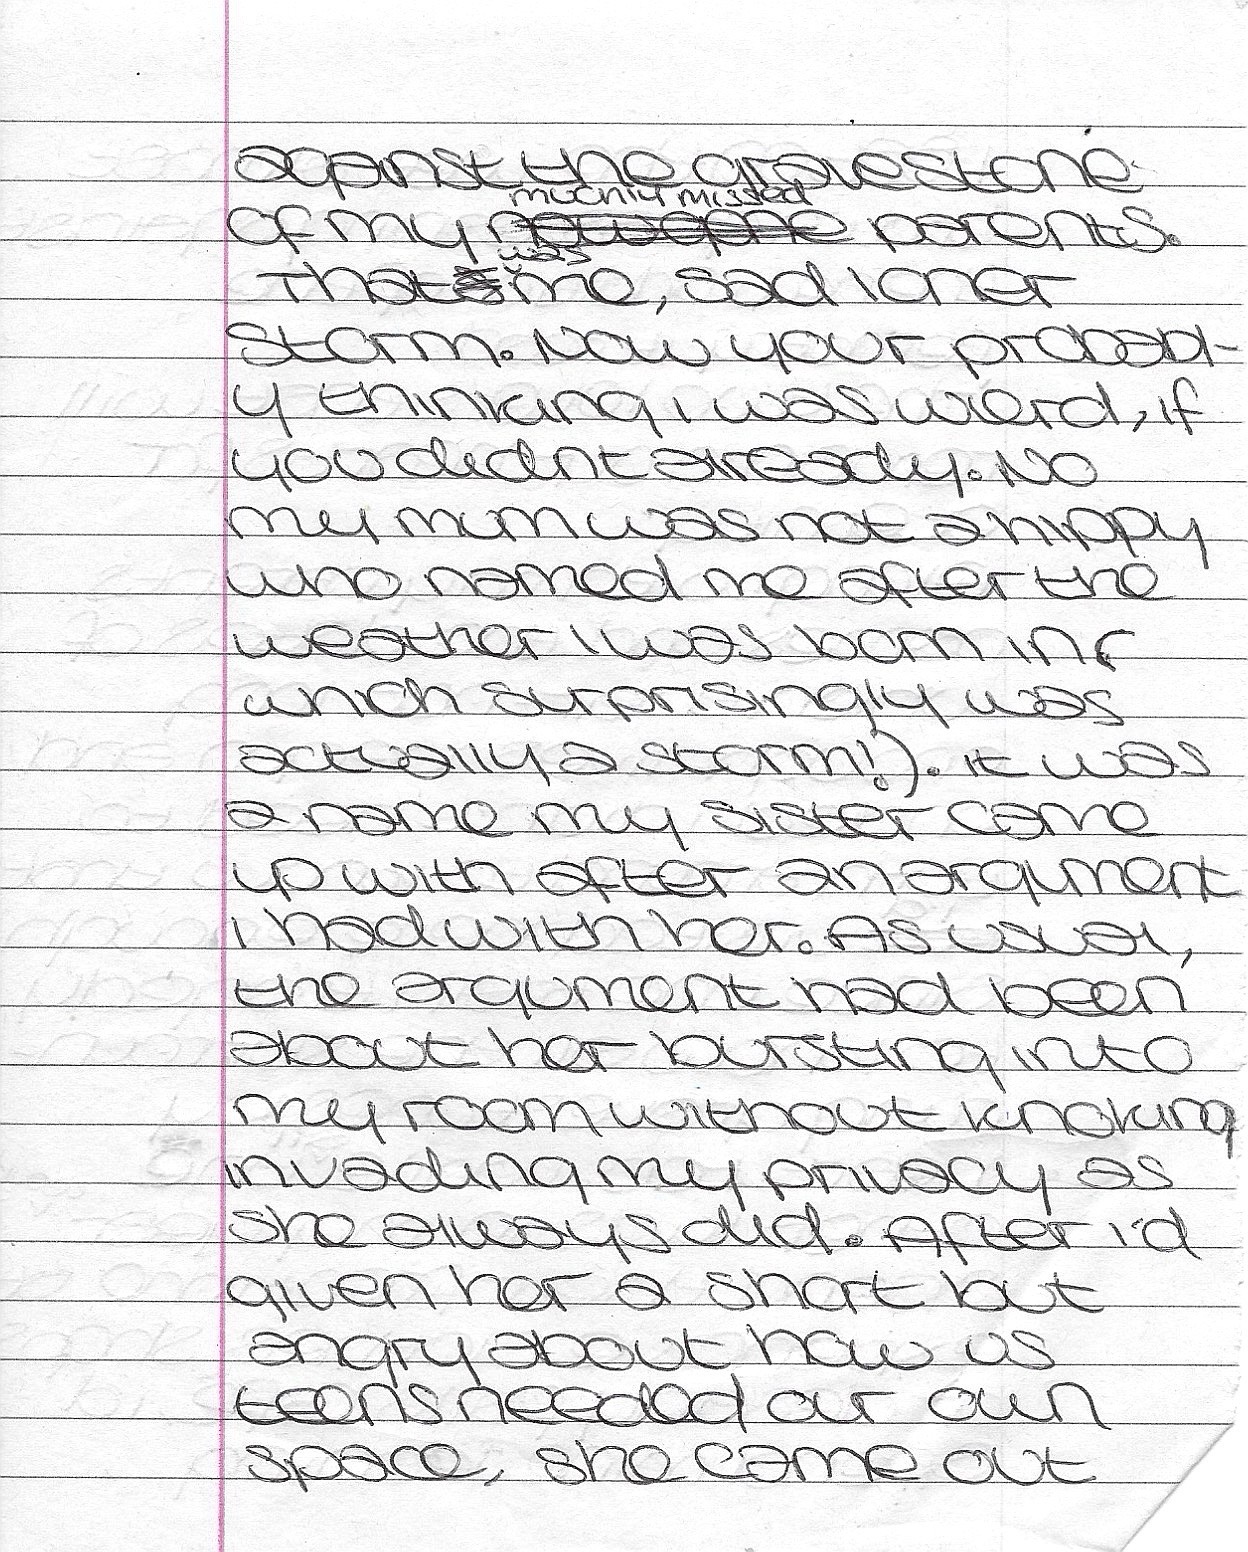 against the gravestone
muchly missed
of my parents.
was
That me, sad loner
Storm. Now your probabl-
y thinking i was wierd, if
you didnt already. No
my mum was not a hippy
who named me after the
weather i was born in (
which surprisingly was
actually a storm!). it was
a name my sister came
up with after an argument
i had with her. As usual,
the argument had been
about her bursting into
my room without knoking
invading my privacy as
she always did. After i'd
given her a short but
angry about how us
teens needed our own
space, she came out